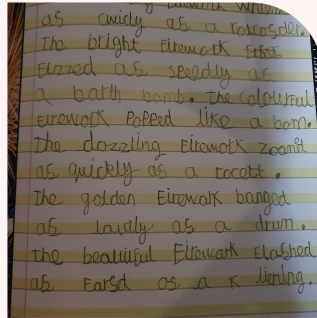 as cuicly as a rolcosder.
The bright Eirework
Fizzed as speedly as
a barth bomb. The colourful
Eirework Popped like a bom.
The dazzling Eirework zoomd
as quickly as a rocett.
The golden Eirework banged
as loudly as a drum.
The beautiful Eirework Elashed
as as a